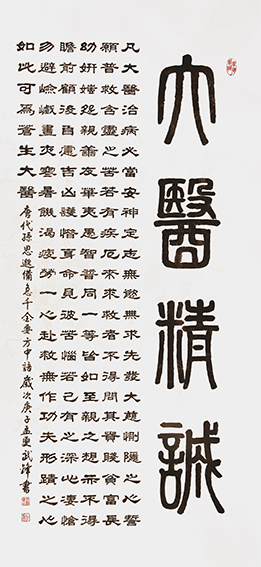 大醫精誠
凡大醫治病必當安神定志無慾無求先發大慈惻隱之心誓
願普救含靈之苦若有疾厄來求救者不得問其貴賤貧富長
幼妍媸怨親善友華夷愚智普同一等皆如至親之想亦不得
瞻前顧後自慮吉凶護惜身命見彼苦惱若己有之深心悽愴
勿避嶮巇晝夜寒暑飢渴疲勞一心赴救無作功夫形蹟之心
如此可為蒼生大醫
唐代孫思邈備急千金要方中語歲次庚子孟夏武鋒書